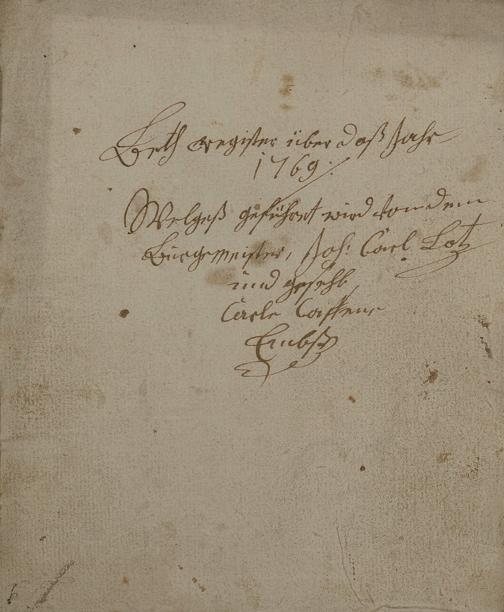 Beth register über daß Jahr
1769.
Welges geführet wird von dem
Burgemeister, Joh: Carl Lotz
und gesehl
Carle Casspar